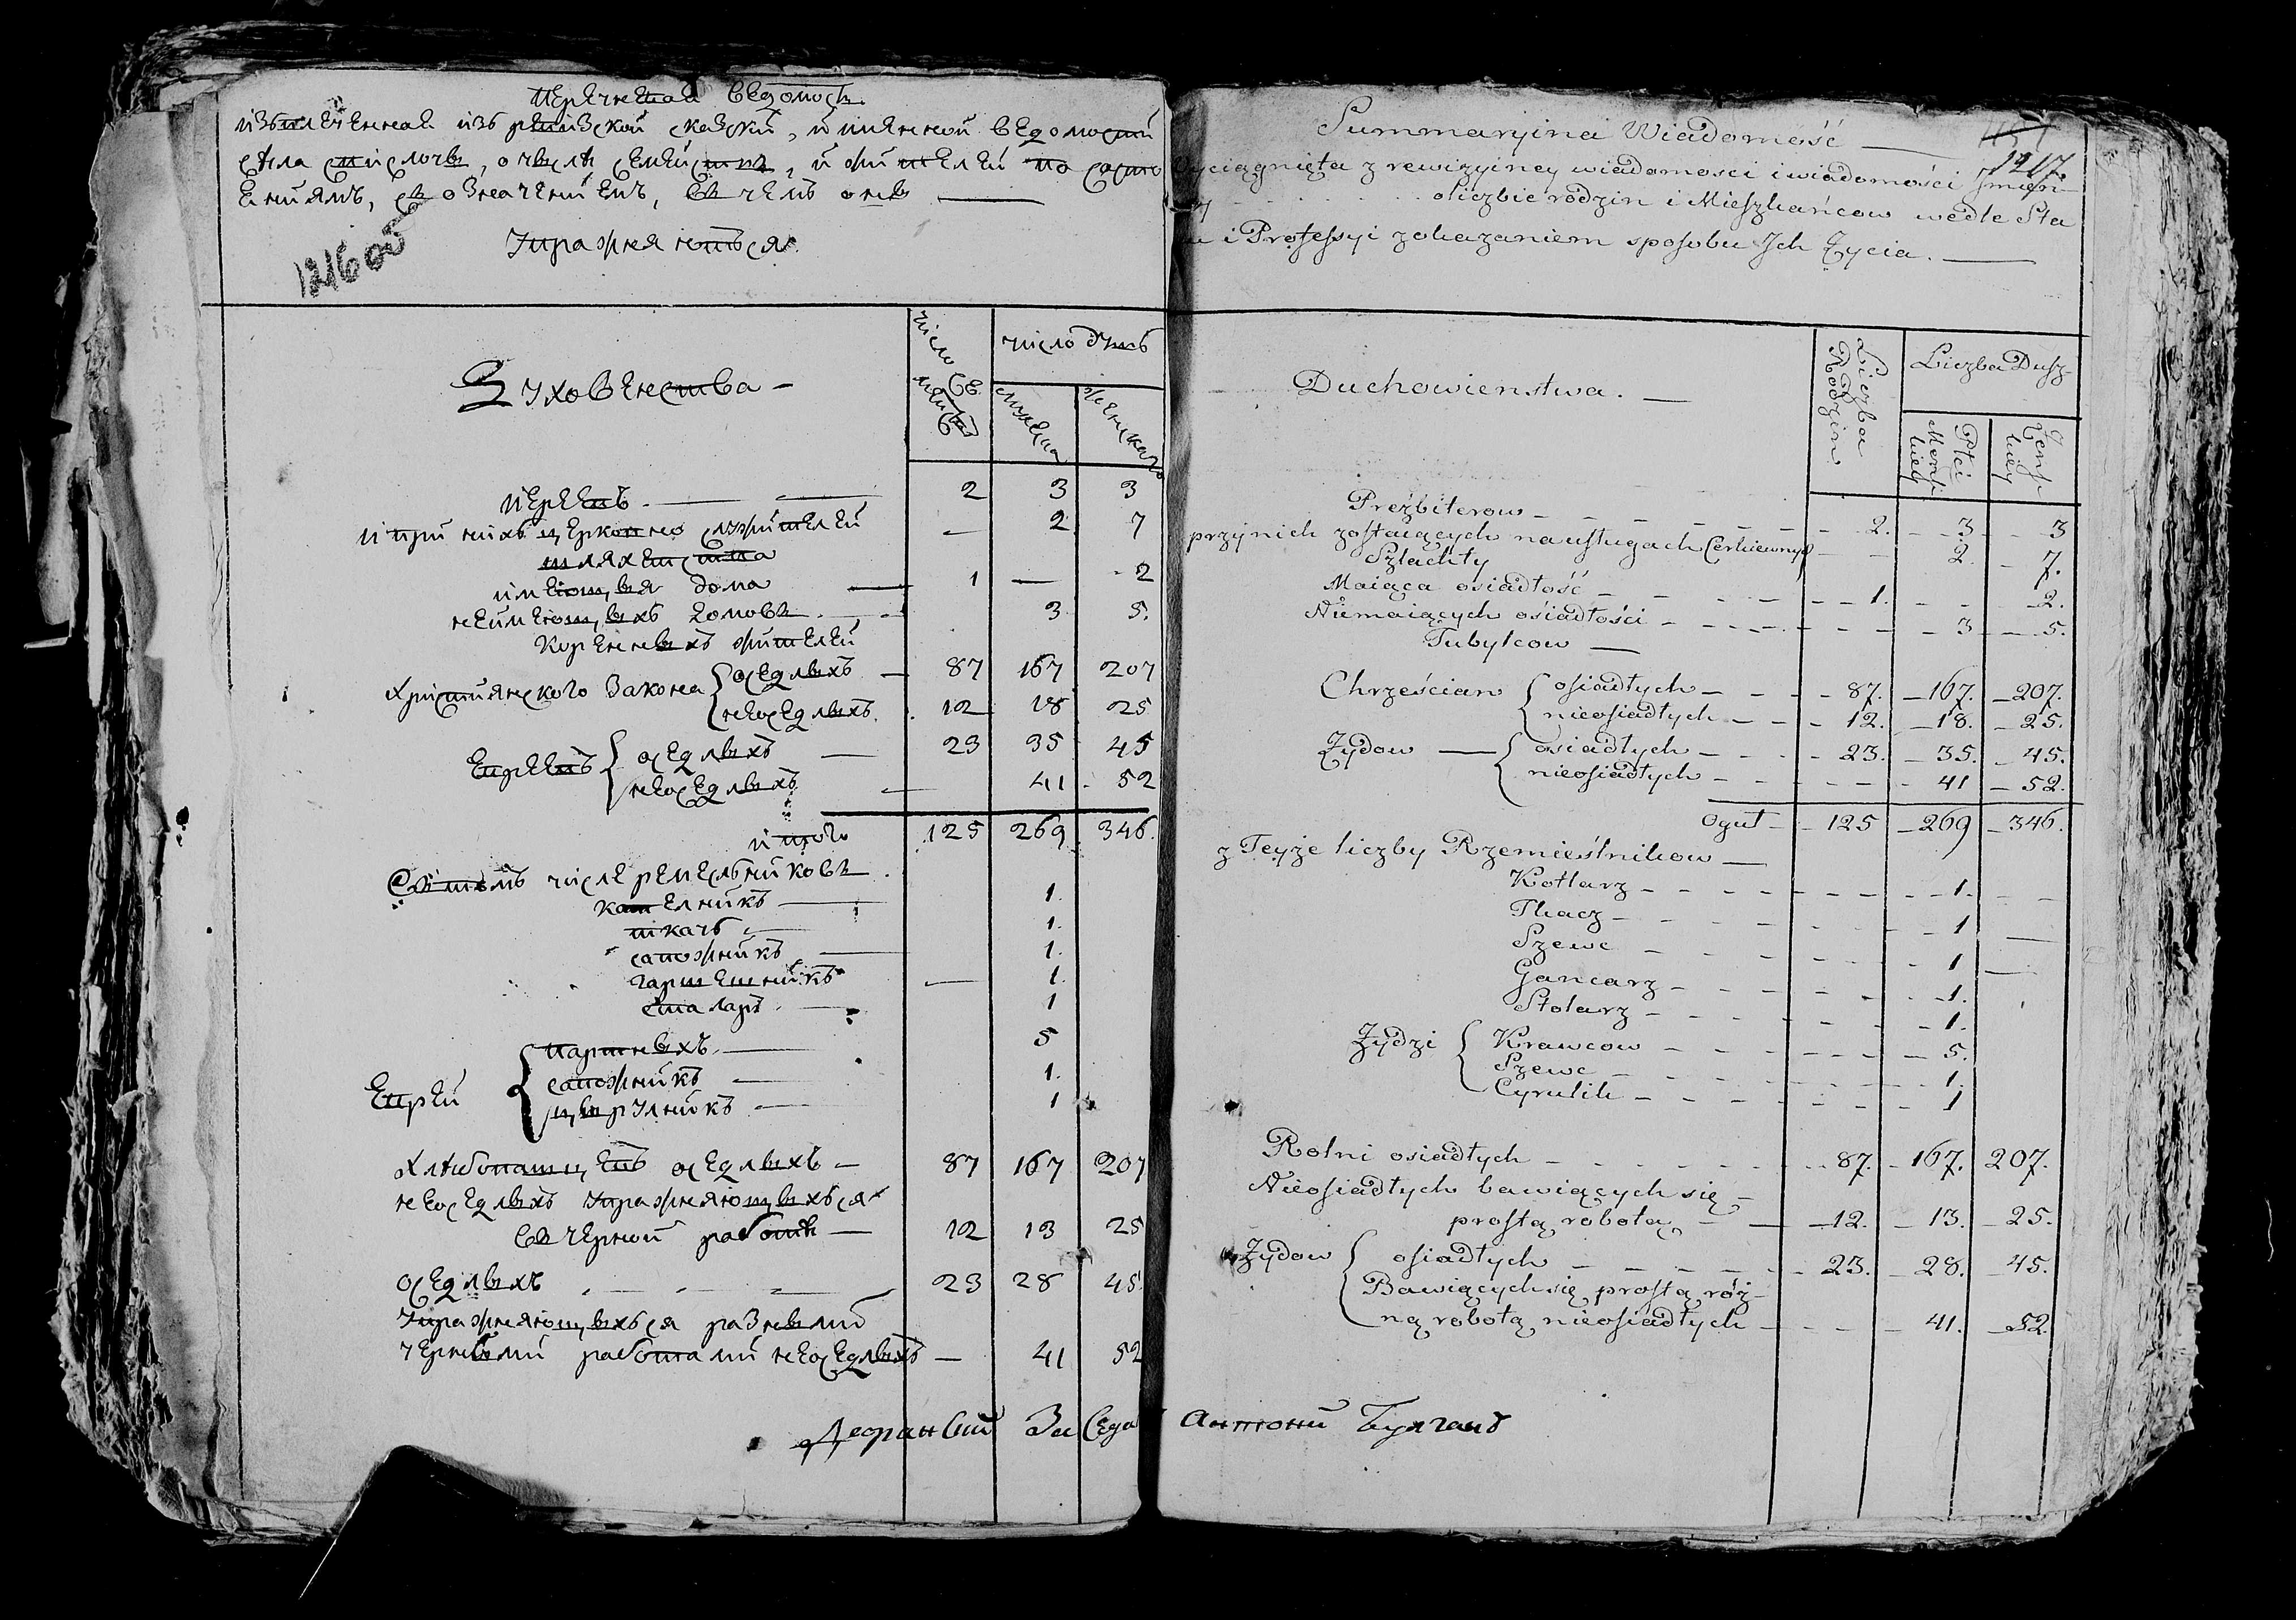 Перечневая ведомость
извлеченная изъ ревизской сказки, и имянной ведомости
села Смислочвы, о числѣ семействъ, и жителей по состо
ениямъ, съ означениемъ, въ чемъ оны
упражняютъся
1216 об
Духовенства
число семействъ
число душъ
мужеска
женскаго
иереевъ 2 3 3
и при нихъ церковно служителей — 2 7
шляхетства
имеющыя дома 1 — 2
неимеющыхъ домовъ 3 5.
Коренныхъ жителей
християнского закона оседлыхъ 87 167 207
неоседлыхъ 12 18 25
Евреевъ оседлыхъ 23 35 45
неоседлыхъ 41 52
итого 125 269 346.
Съ того числе ремесльниковъ
кателникъ 1.
ткачъ 1.
сапожникъ 1.
гартешникъ — 1.
сталаръ 1
Еврей партныхъ 5
сапожникъ 1.
цырулникъ 1
хлѣбопашцевъ оседлыхъ 87 167 207
неоседлыхъ упражняющыхъся
въ черной работѣ 12 13 25
оседлыхъ 23 28 45.
упражняющыхъся разными
черными работами неоседлыхъ — 41 52
1217.
Summaryina Wiadomość
Wyciągnięta z rewizyiney wiadomosci i wiadomości Jmięn-
ey . . . . . . . oliczbie rodzin i Mieszkańcow wedle Sta
nu i Professyi zokazaniem sposobu Jch Zycia.
Duchowienstwa.
Liczba Rodzin.
Liczba Dusz
Płci Mensk kiey
Zensk kiey
Prezbiterow 2. 3 3
przynich zostaiących nausługach Cerkiewnych 2. 7.
Szlachty
Maiąca osiadłość 1. 2.
Niemaiących osiadłości 3 5.
Tubylcow
Chrześcian osiadłych 87. 167. 207.
nieosiadłych 12. 18. 25.
Zydow osiadłych 23. 35. 45.
nieosiadłych 41 52.
Oguł 125 269 346.
z Teyże liczby Rzemieślnikow
Kotlarz 1.
Tkacz 1
Szewc 1
Gancarz 1.
Stolarz 1.
Zydzi Krawcow 5.
Szewc 1.
Cyrulik 1
Rolni osiadłych 87. 167. 207.
Nieosiadłych bawiących się
prostą robotą 12. 13. 25.
Zydow osiadłych 23. 28. 45.
Bawiących się prostą róż-
ną robotą nieosiadłych 41. 52.
Дворанский Заседа Антони